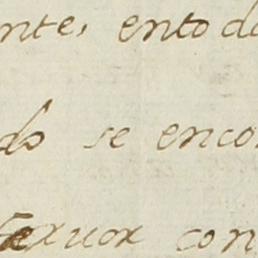 nte, entoda
do se enco
feruor con